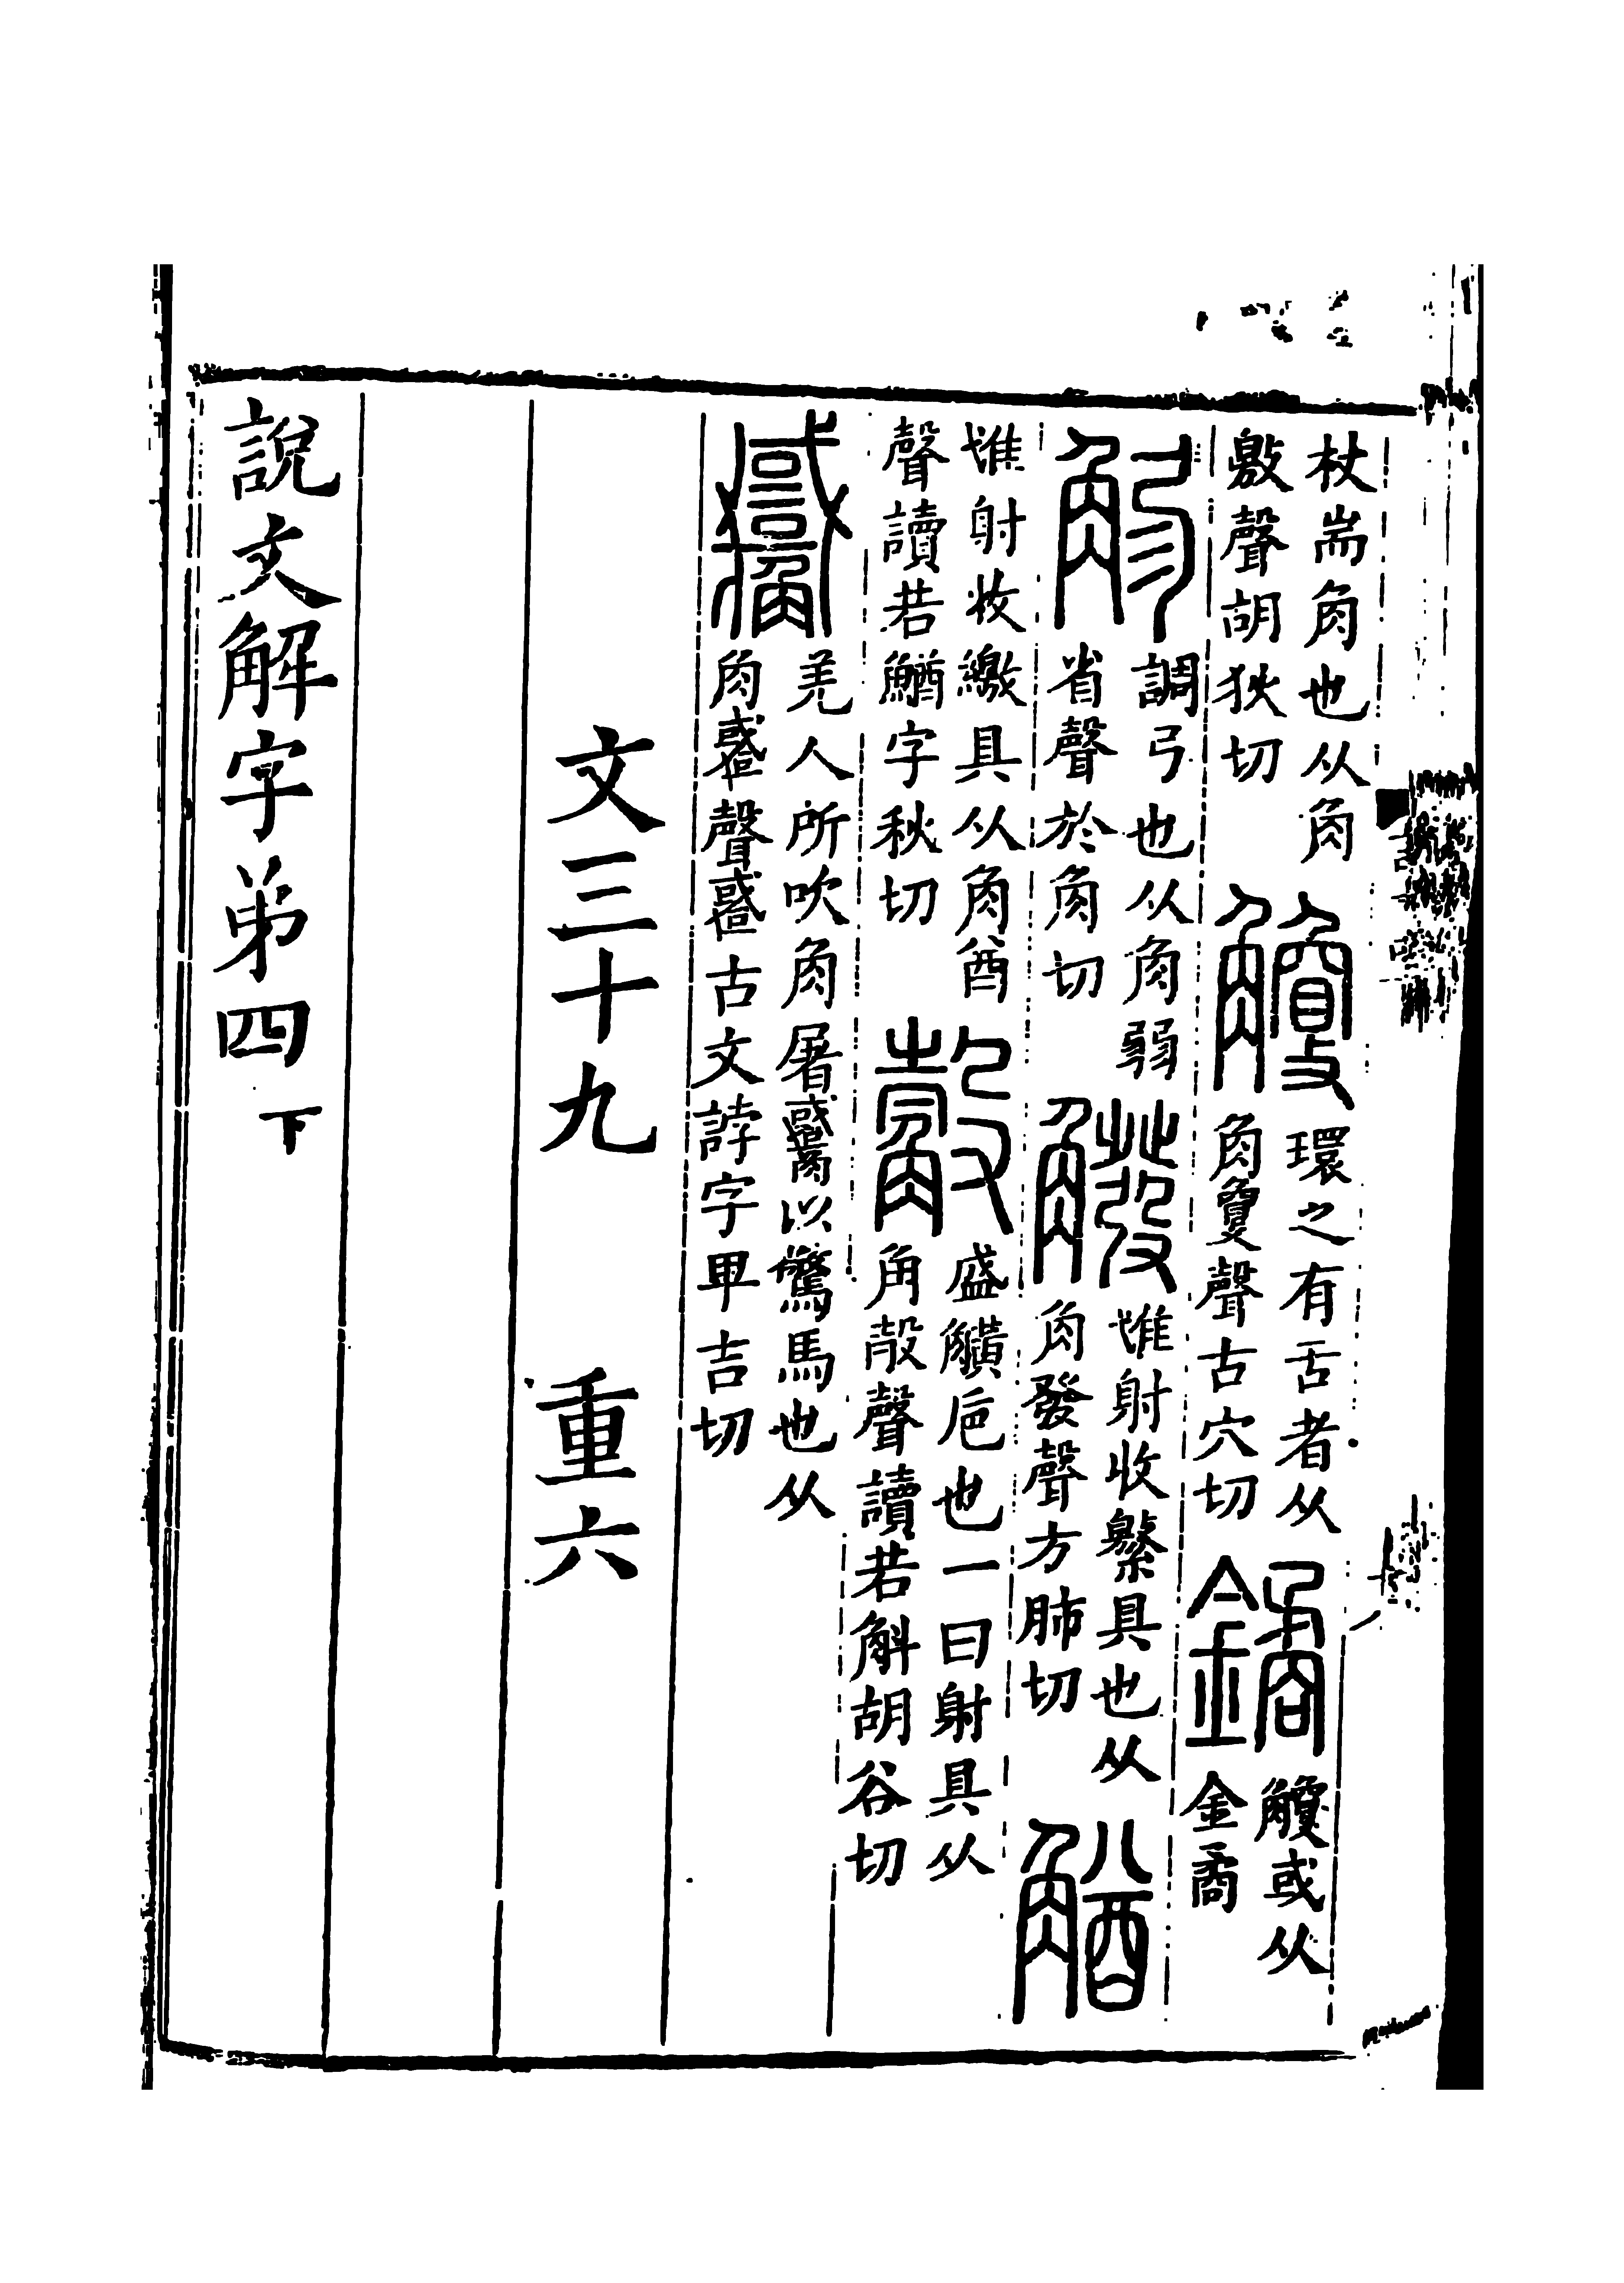 杖耑角也从角
敫聲胡狄切
觼
環之有舌者从
角夐聲古穴切
鐍
觼或从
金矞
䚥
調弓也从角弱
省聲於角切
䚨
隿射收繁具也从
角發聲方肺切
𧤝
隿射收繳具从角酋
聲讀若鰌字秋切
觳
盛觵卮也一曰射具从
角㱿聲讀若斛胡谷切
𧥑
羌人所吹角屠𧥑以驚馬也从
角𧧻聲𧧻古文誖字畢吉切
文三十九 重六
說文解字弟四下